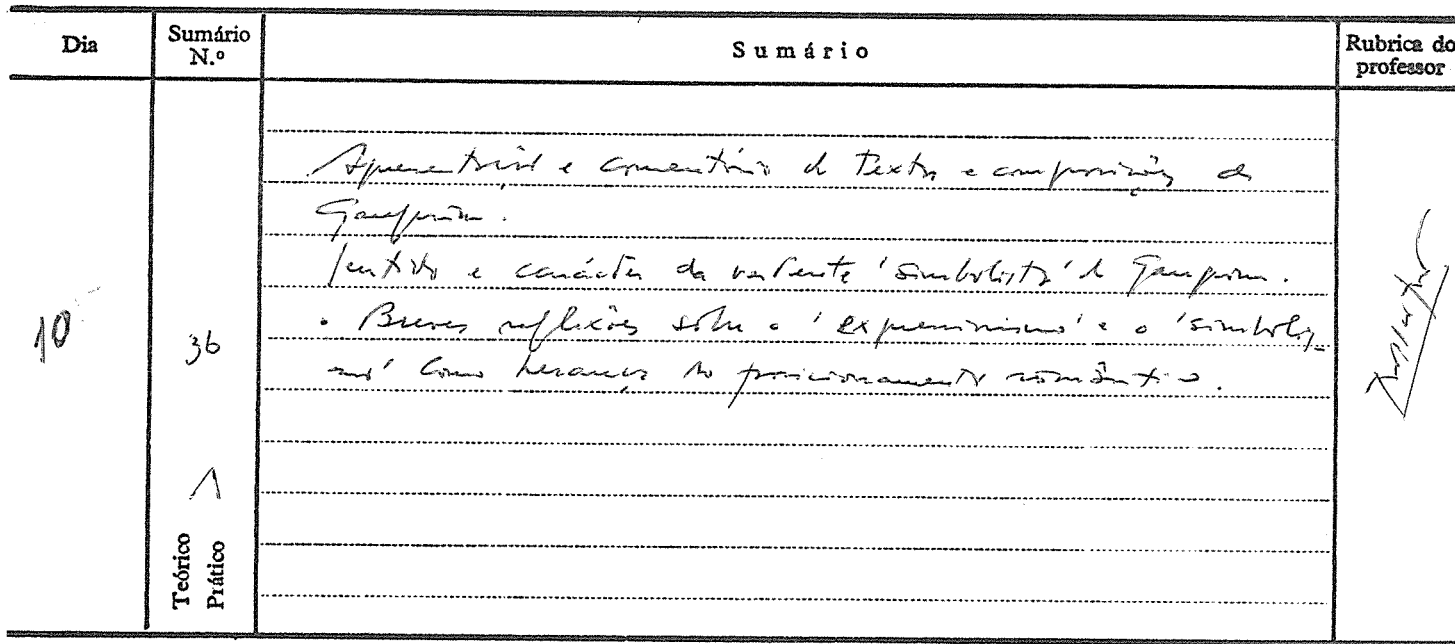 Dia
Sumário N.º
Sumário
Rubrica do professor
Apresentação e comentário de textos e composições de
Gauguin.
Sentido e carácter da vertente 'simbolista' de Gauguin.
. Breves reflexões sobre o 'expressionismo' e o 'simbolis-
mo' como herança do posicionamento romântico.
10
36
1
Teórico
Prático